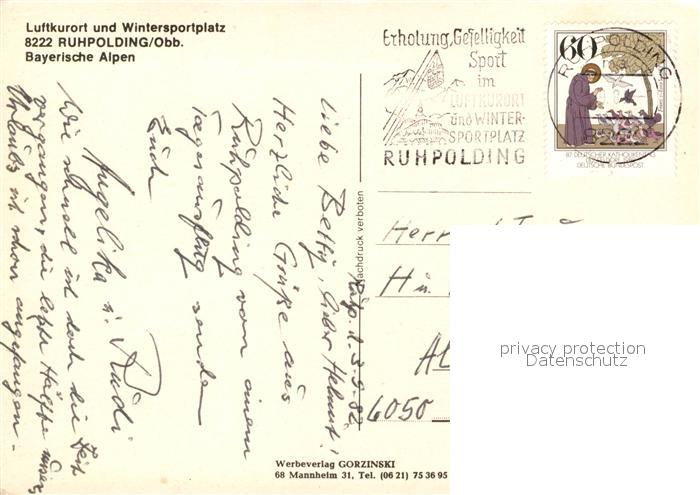 Luftkurort und Wintersportplatz
8222 RUHPOLDING/Obb.
Bayerische Alpen
Erholung, Geselligkeit
Sport
im
LUFTKURORT
und WINTER-
SPORTPLATZ
RUHPOLDING
60
RUHPOLDING
8222
87. DEUTSCHER KATHOLIKENTAG
DEUTSCHE BUNDESPOST
Ruhp. d. 3.9.82
Liebe Betty, lieber Helmut!
Herzliche Grüße aus
Ruhpolding von einem
Tagesausflug senden
Euch
Angelika u. Rudi
Wie schnell ist doch die Zeit
vergangen, die letzte Hälfte unseres
Urlaubs ist schon angefangen.
Nachdruck verboten
Herr
6050
privacy protection
Datenschutz
Werbeverlag GORZINSKI
68 Mannheim 31, Tel. (06 21) 75 36 95